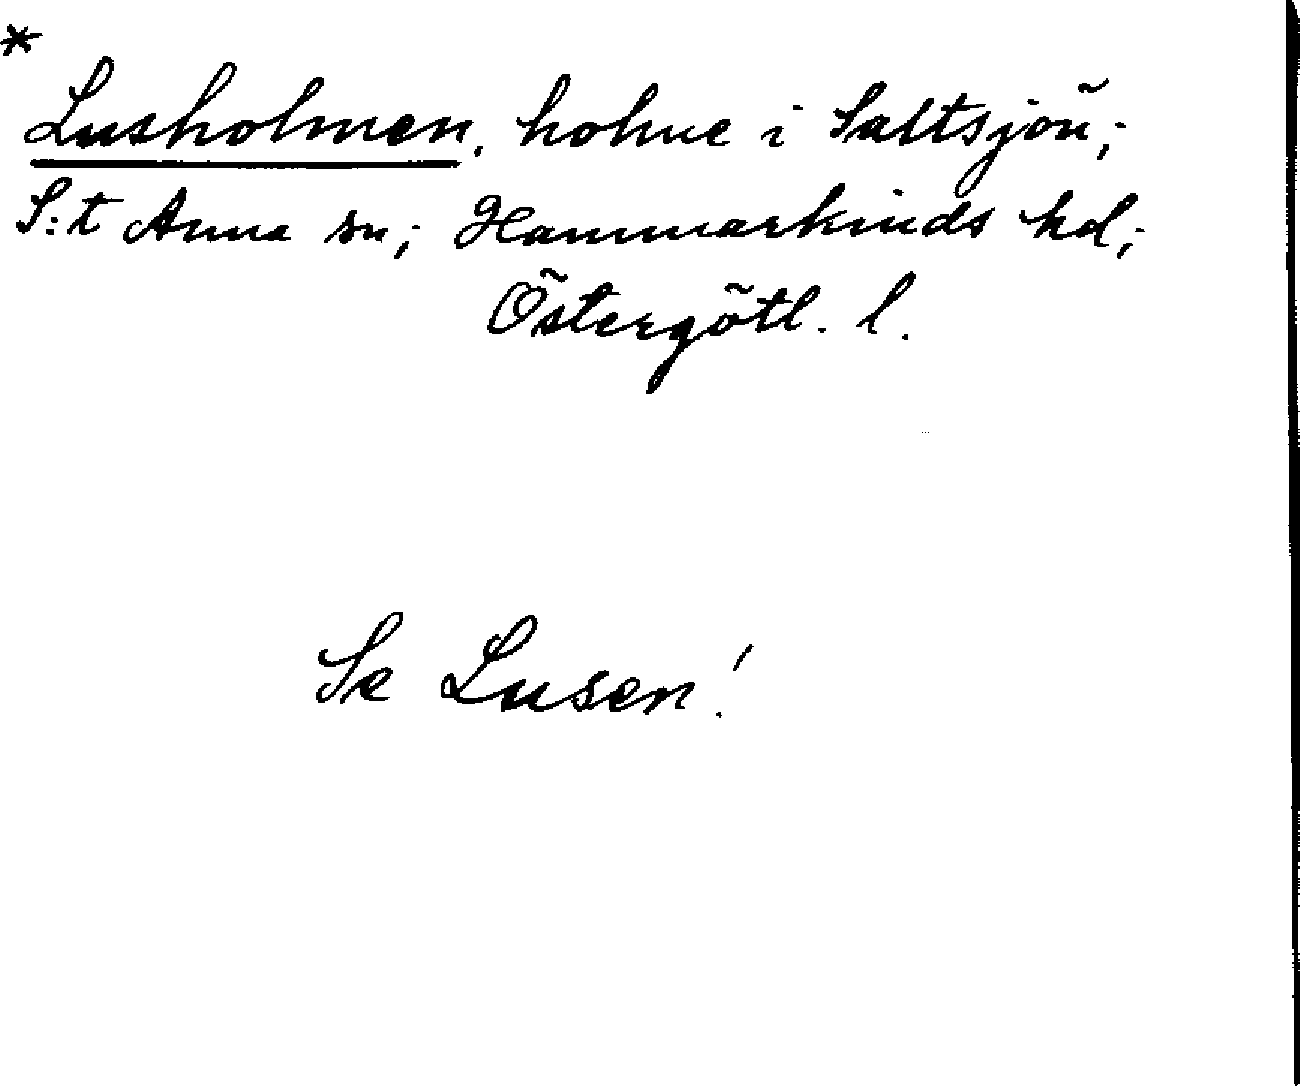 *
Lusholmen. holme i Saltsjön;
S:t Anna sn; Hammarkinds hd;
Östergötl. l.
Se Lusen!